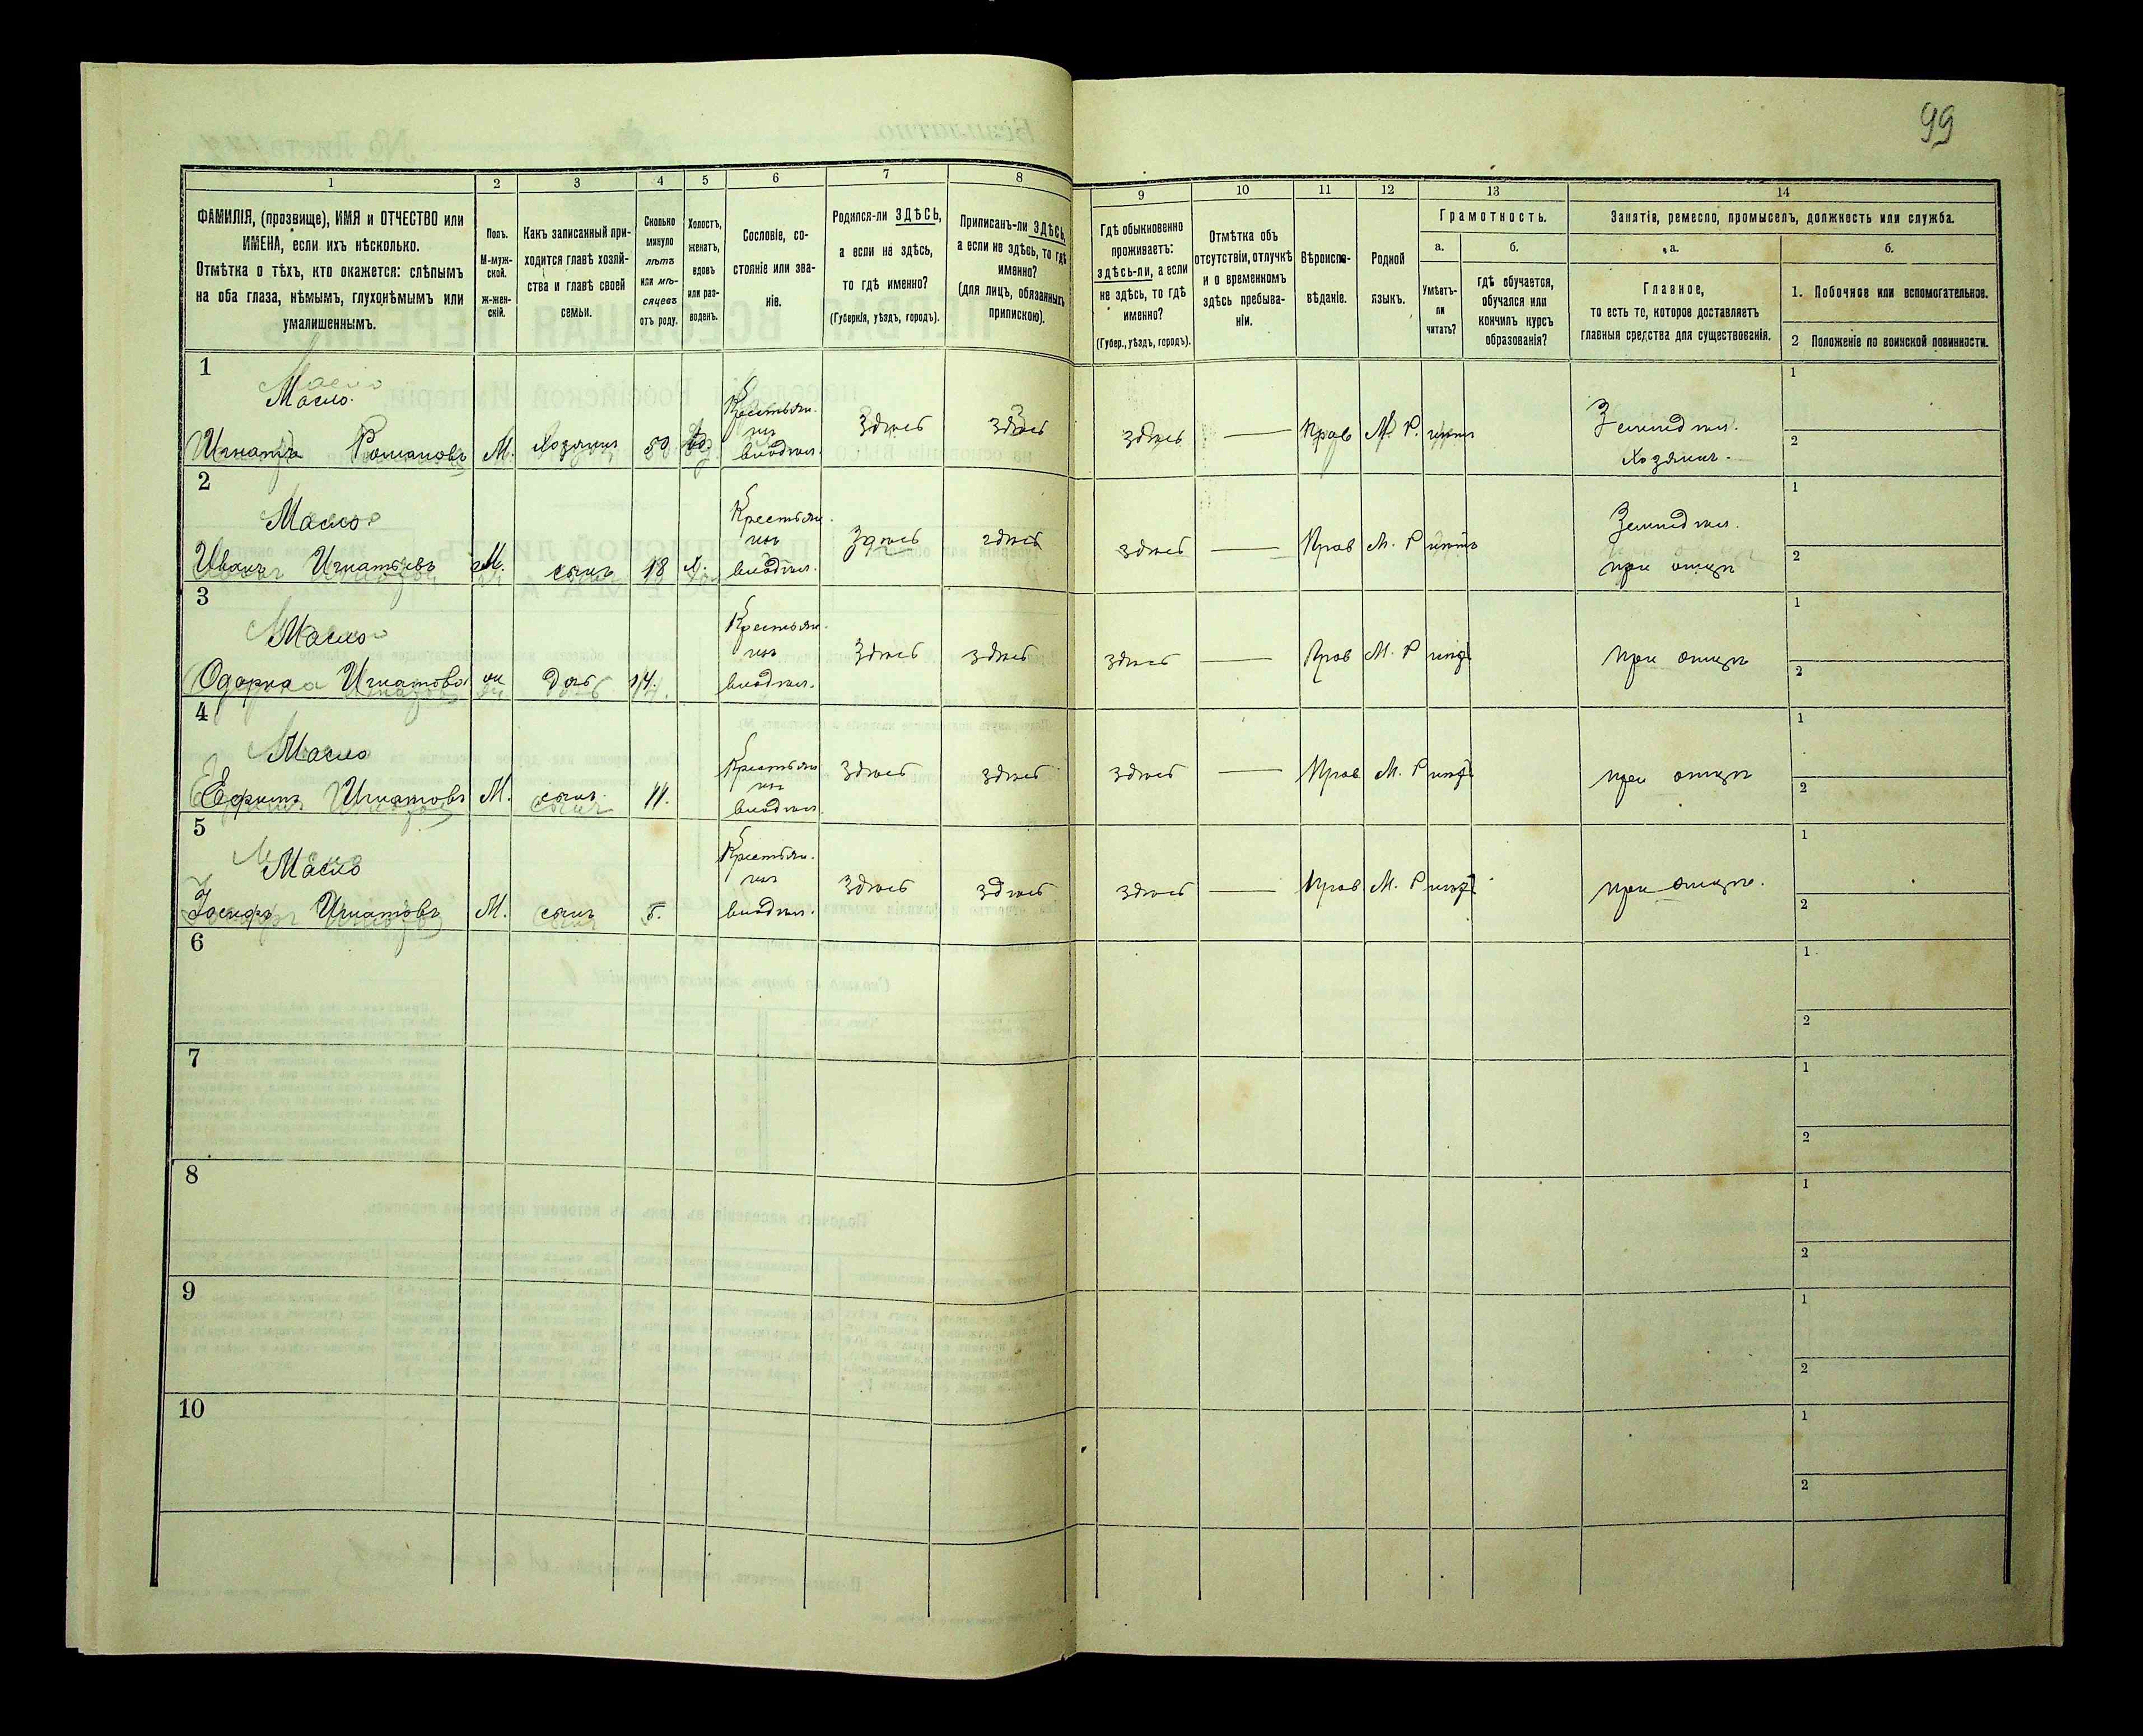 99
1 2 3 4 5 6 7 8 9 10 11 12 13 14
ФАМИЛІЯ, (прозвище), ИМЯ и ОТЧЕСТВО или
ИМЕНА, если ихъ нѣсколько.
Отмѣтка о тѣхъ, кто окажется: слѣпымъ
на оба глаза, нѣмымъ, глухонѣмымъ или
умалишеннымъ.
Полъ.
М-муж-
ской.
ж-жен-
скій.
Какъ записанный при-
ходится главѣ хозяй-
ства и главѣ своей
семьи.
Сколько
минуло
лѣтъ
или мѣ-
сяцевъ
отъ роду.
Холостъ,
женатъ,
вдовъ
или раз-
воденъ.
Сословіе, со-
стояніе или зва-
ніе.
Родился-ли ЗДѢСЬ,
а если не здѣсь,
то гдѣ именно?
(Губернія, уѣздъ, городъ).
Приписанъ-ли ЗДѢСЬ,
а если не здѣсь, то гдѣ
именно?
(для лицъ, обязанныхъ
припискою).
Гдѣ обыкновенно
проживаетъ:
здѣсь-ли, а если
не здѣсь, то гдѣ
именно?
(Губер., уѣздъ, городъ).
Отмѣтка объ
отсутствіи, отлучкѣ
и о временномъ
здѣсь пребыва-
ніи.
Вѣроиспо-
вѣданіе.
Родной
языкъ.
Грамотность.
а. б.
Умѣетъ-
ли
читать?
гдѣ обучается,
обучался или
кончилъ курсъ
образованія?
Занятіе, ремесло, промыселъ, должность или служба.
а. б.
Главное,
то есть то, которое доставляетъ
главныя средства для существованія.
1. Побочное или вспомогательное.
2 Положеніе по воинской повинности.
1
Масло.
Игнатъ Романовъ М. Хозяинъ 50 вд
Крестьян.
инъ
владѣл.
Здѣсь здѣсь здѣсь — Прав М. Р. нѣтъ
Земледѣл.
Хозяинъ.
1
2
2
Масло
Иванъ Игнатьевъ М. сынъ 18 х.
Крестьян.
инъ
владѣл.
Здѣсь здѣсь здѣсь — Прав М. Р нѣтъ
Земледѣл.
при отцѣ
1
2
3
Масло
Одарка Игнатова ж дочь 14.
Крестьян.
инъ
владѣл.
Здѣсь здѣсь здѣсь — Прав М. Р нѣтъ
при отцѣ
1
2
4
Масло
Ефимъ Игнатовъ М. сынъ 11.
Крестьян
инъ
владѣл.
Здѣсь здѣсь здѣсь — Прав М. Р нѣтъ
при отцѣ
1
2
5
Масло
Іосифъ Игнатовъ М. сынъ 5.
Крестьян.
инъ
владѣл.
Здѣсь здѣсь здѣсь — Прав М. Р нѣтъ
при отцѣ.
1
2
6
1
2
7
1
2
8
1
2
9
1
2
10
1
2